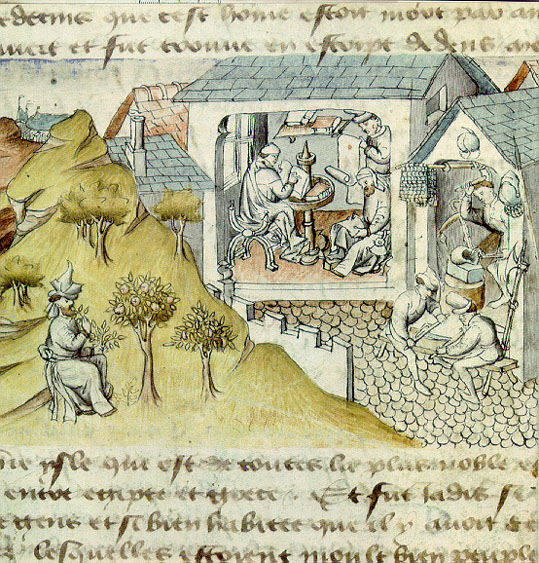 edecins que cest home estoit mort par an
auoit et fut trouue en escript dedens
ysle que est de toutes la plus noble
entre egipte et grece. Et fut jadis
gens et si bien habitee que il y auoit
lesquelles estoient moult bien peuple